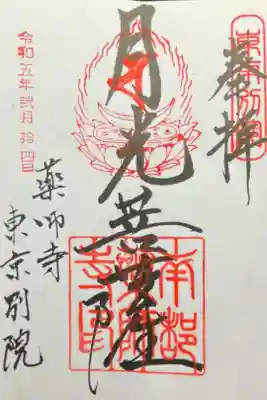 東京別院
奉拝
月光菩薩
南都
薬師寺
東京別院
令和五年弐月拾四日